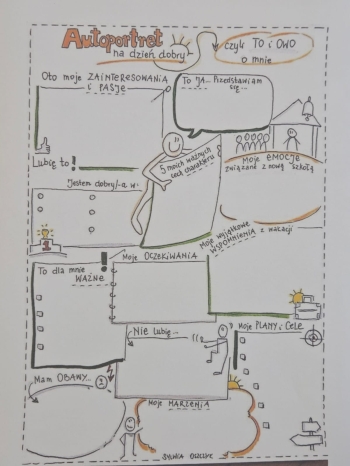 Autoportret
na dzień dobry
czyli TO i OWO
o mnie
Oto moje ZAINTERESOWANIA
i PASJE
To JA... Przedstawiam
się...
Lubię to!
5 moich ważnych
cech charakteru
Moje EMOCJE
ZWIĄZANE z nową szkołą
Jestem dobry/-a w...
1
Moje wyjątkowe
WSPOMNIENIA z wakacji
To dla mnie
WAŻNE!
Moje OCZEKIWANIA
Nie lubię...
Moje PLANY i CELE
Mam OBAWY...
Moje MARZENIA
SYLWIA